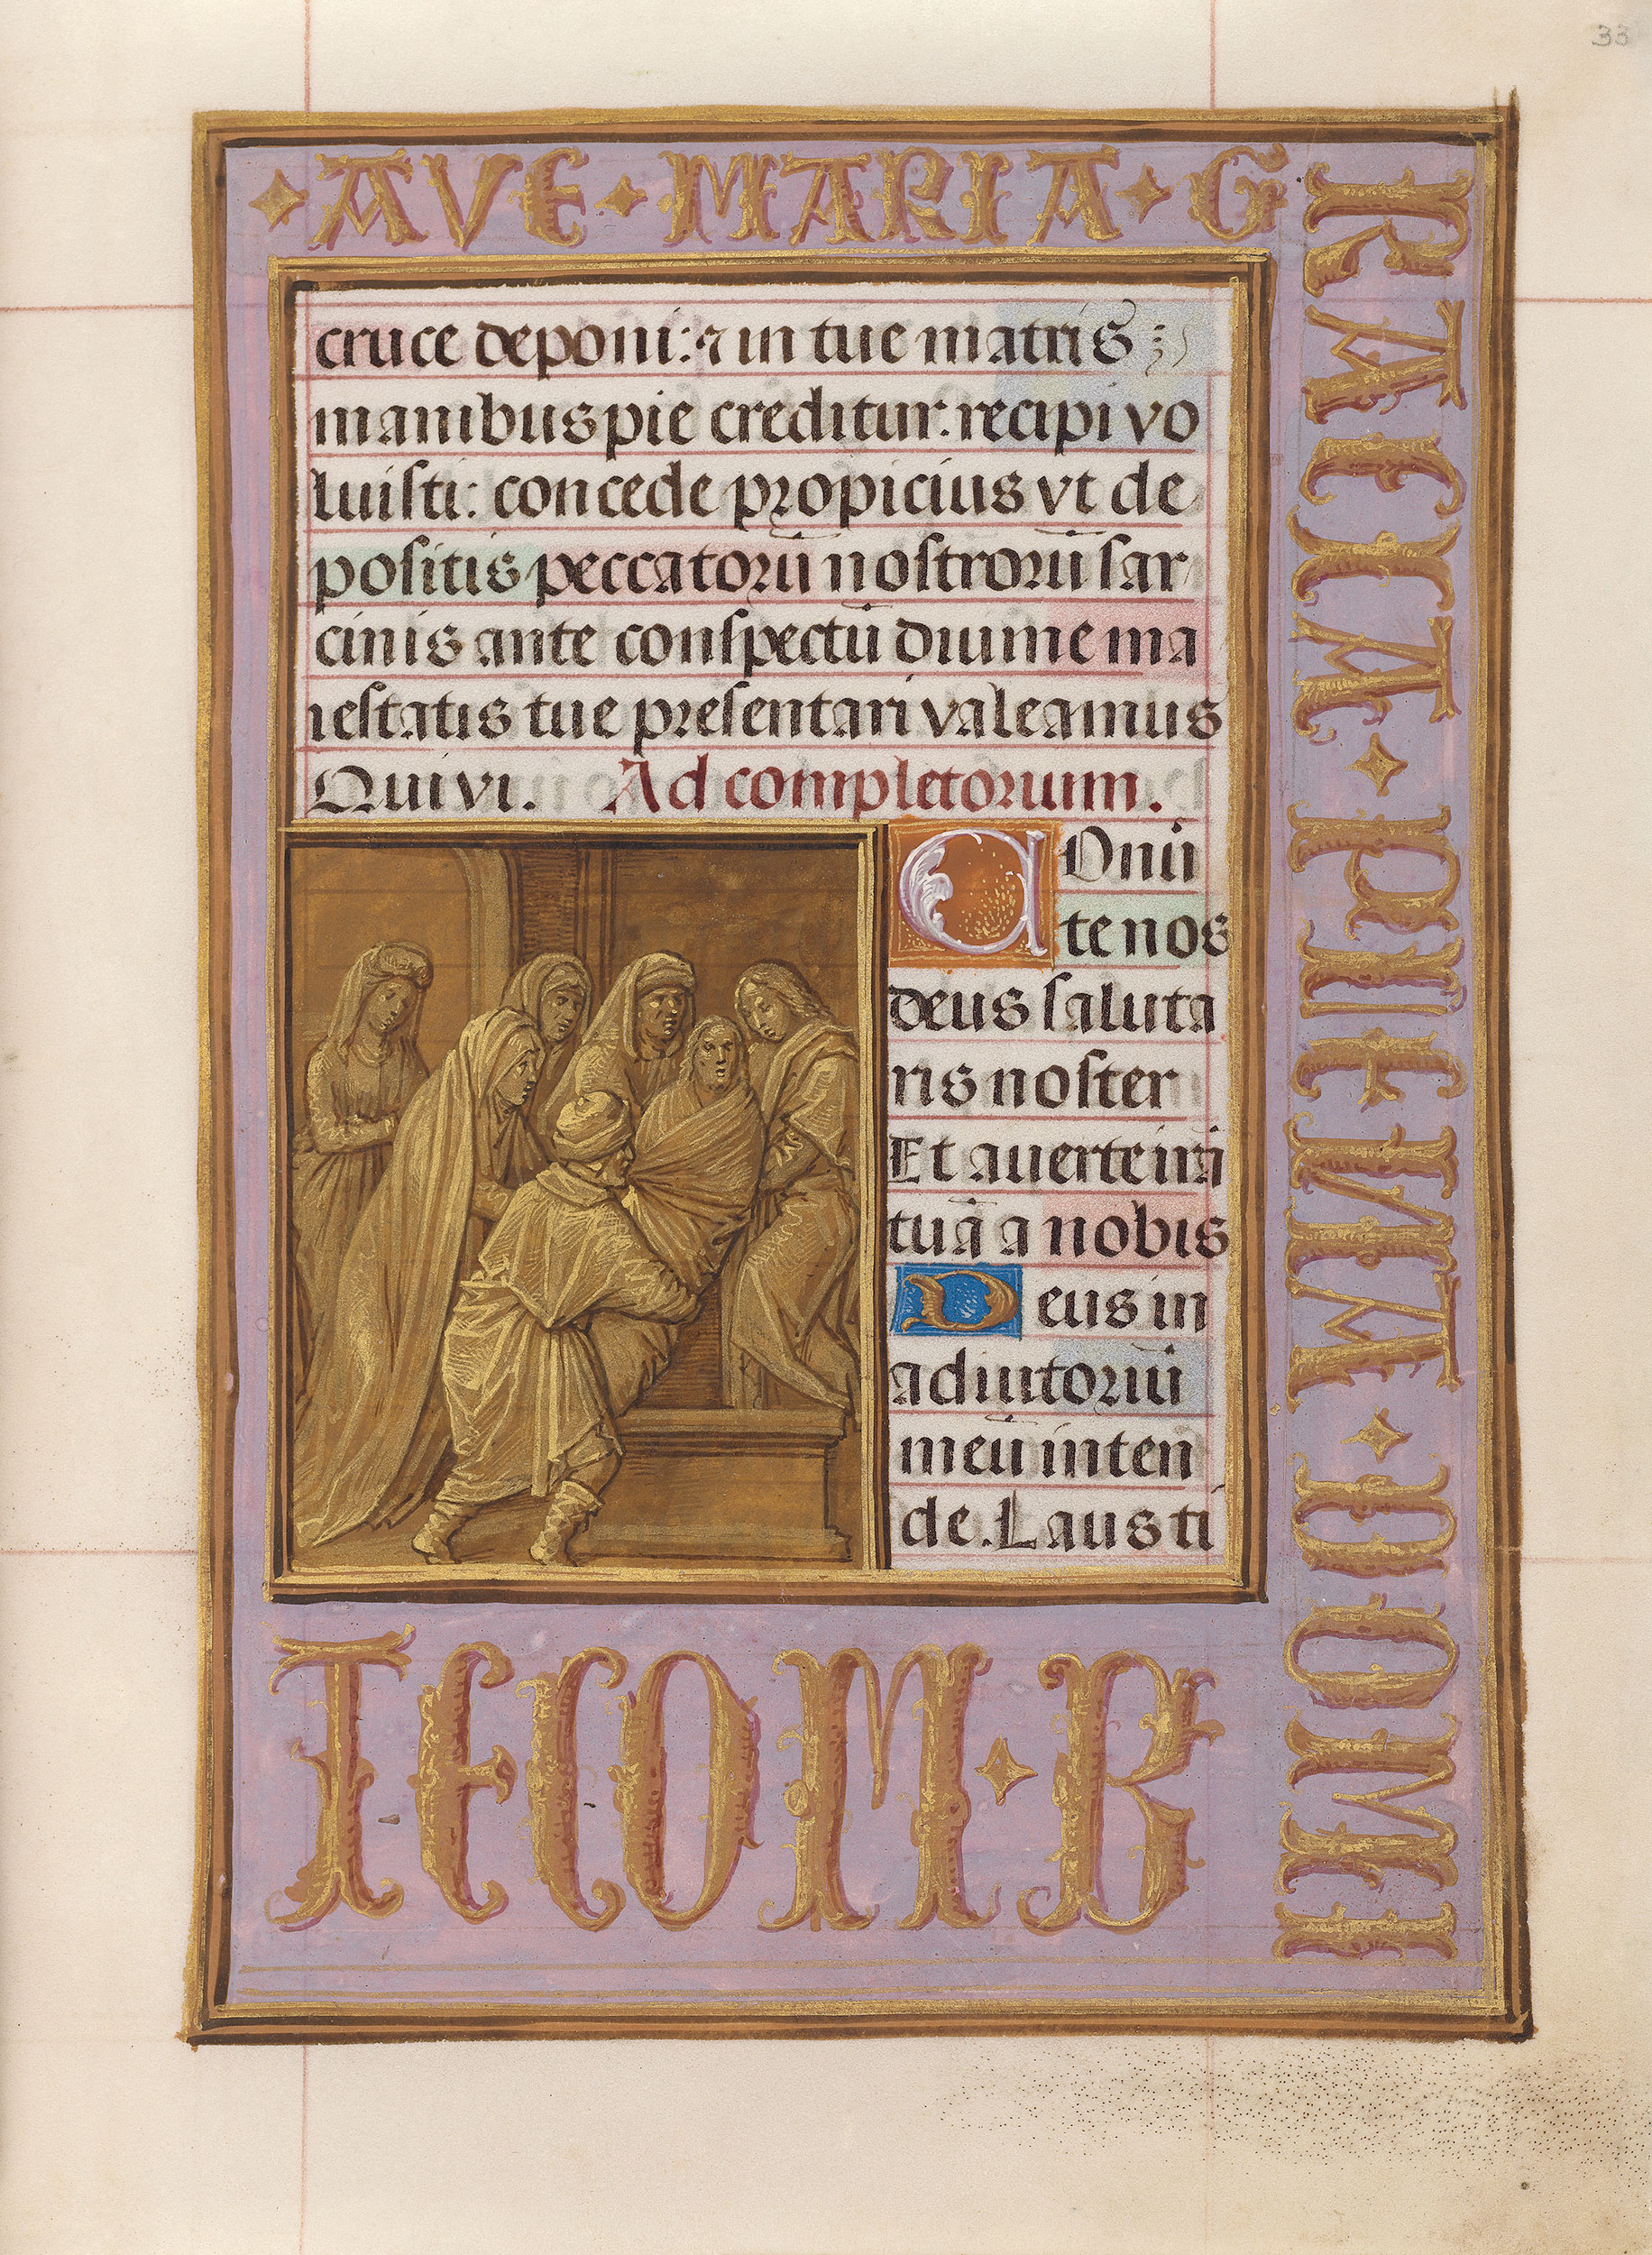 33
AVE MARIA G
RACIA PLIENA DOMI
TECOM B
cruce deponi: ⁊ in tue matris
manibus pie creditur: recipi vo
luisti: concede propicius vt de
positis peccatorū nostrorū sar
cinis ante conspectū diuine ma
iestatis tue presentari valeamus
Qui vi. Ad completorium.
COnū
te nos
deus saluta
ris noster
Et auerte irā
tuā a nobis
Deus in
adiutoriū
meū inten
de. Laus ti